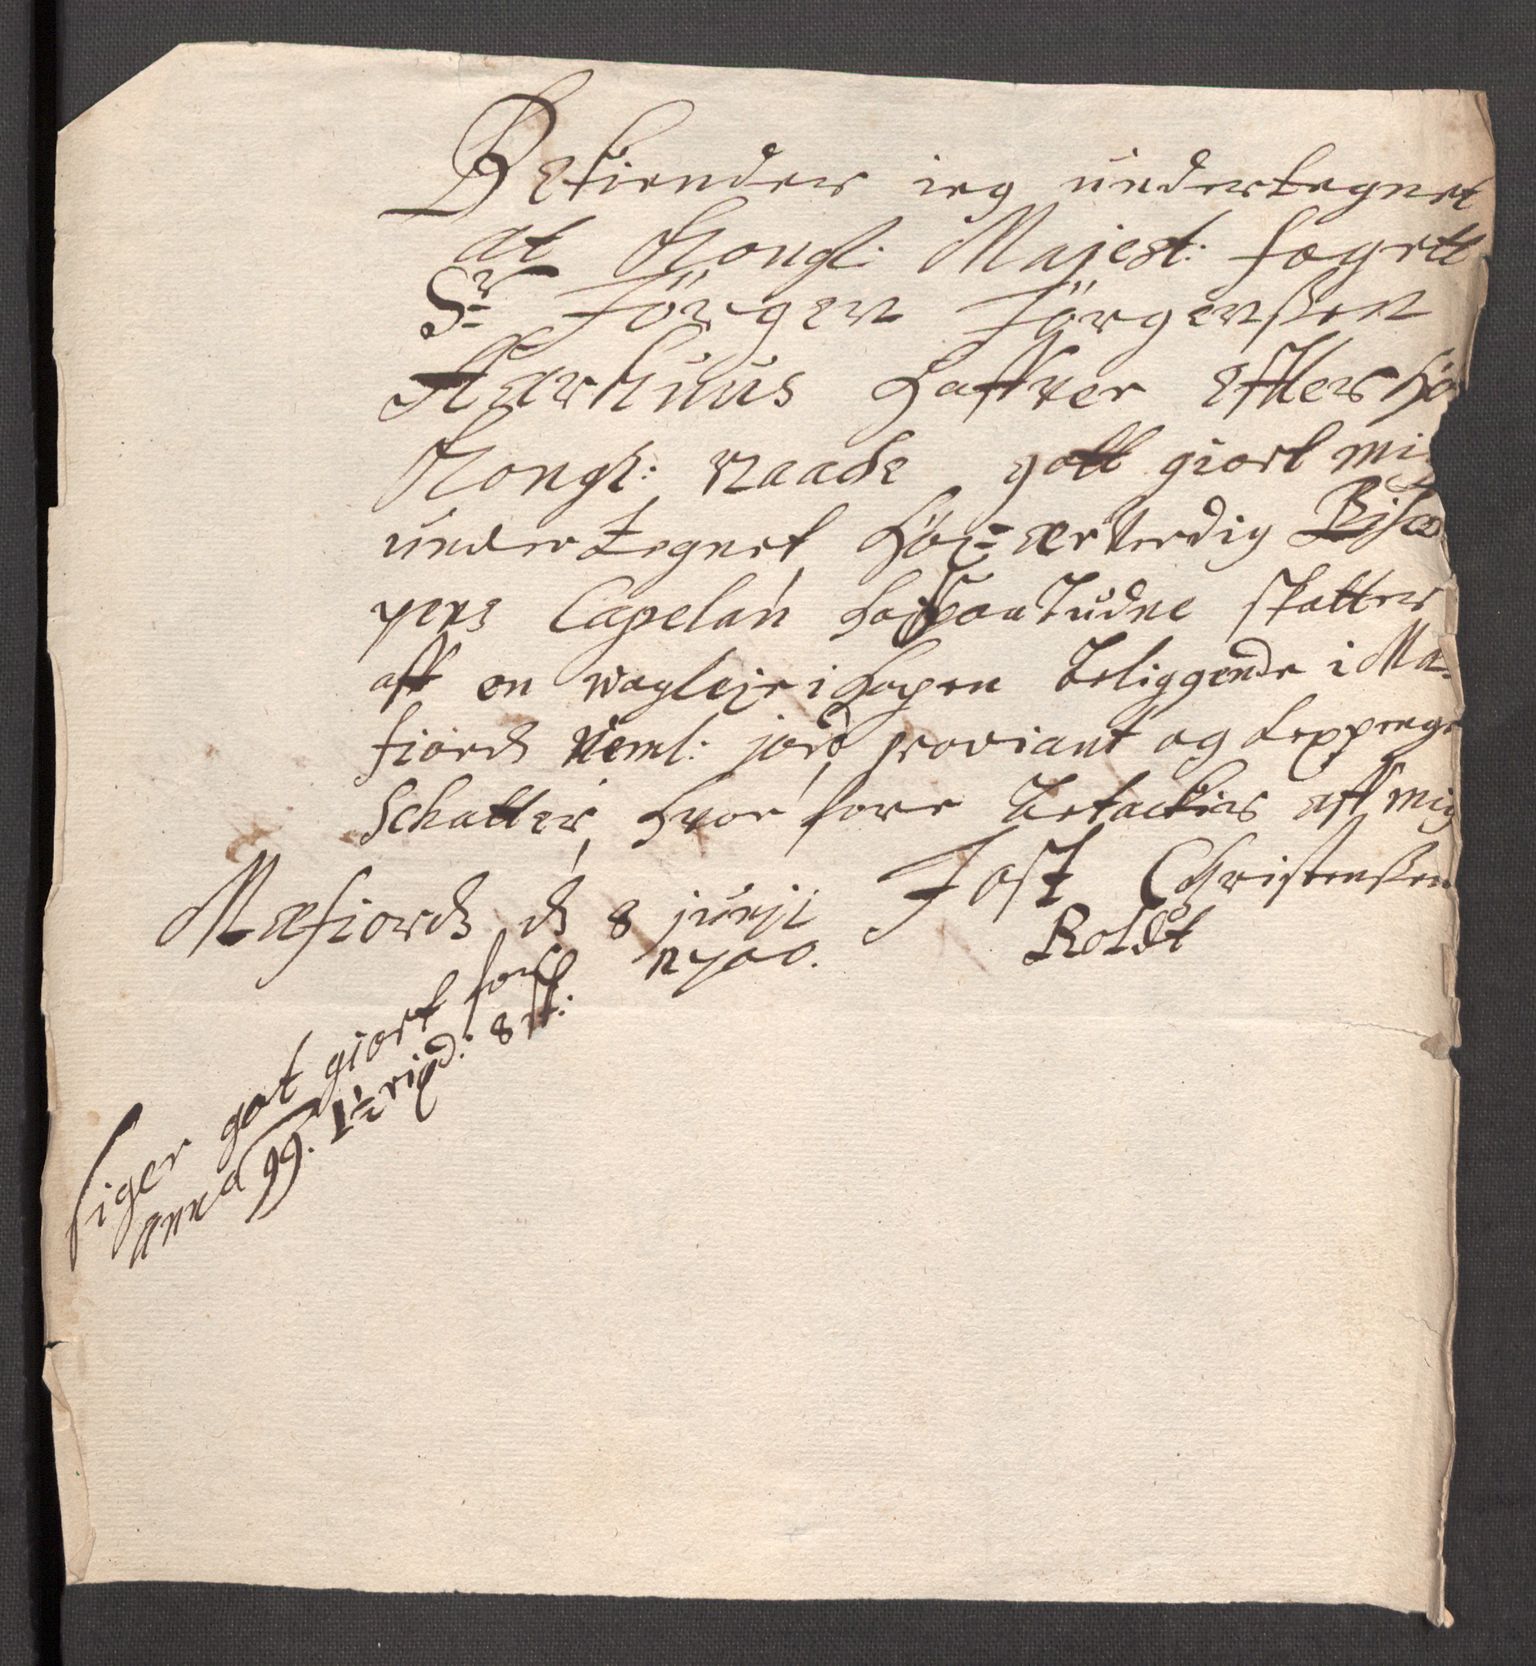 Bekiender ieg undertegnet
at Kongl: Majest: fogett
Sr Jörgen Jörgenßen
Aarhuus haffver effter hö
Kongl: Naade gott giort mig
undertegnet, høy=ærverdig Bisco
pens Capelan, paabudne skatter
aff en wogleje i hopen beliggende i Ma-
fiord Neml: jord, proviant og Leppenge
Schatter, hvor fore betackis aff mig
Mafiord d 8 junji Jost Christenßen
1700. Boldt
siger got giort for
anno 99. 1½ rixd: 8 sk: